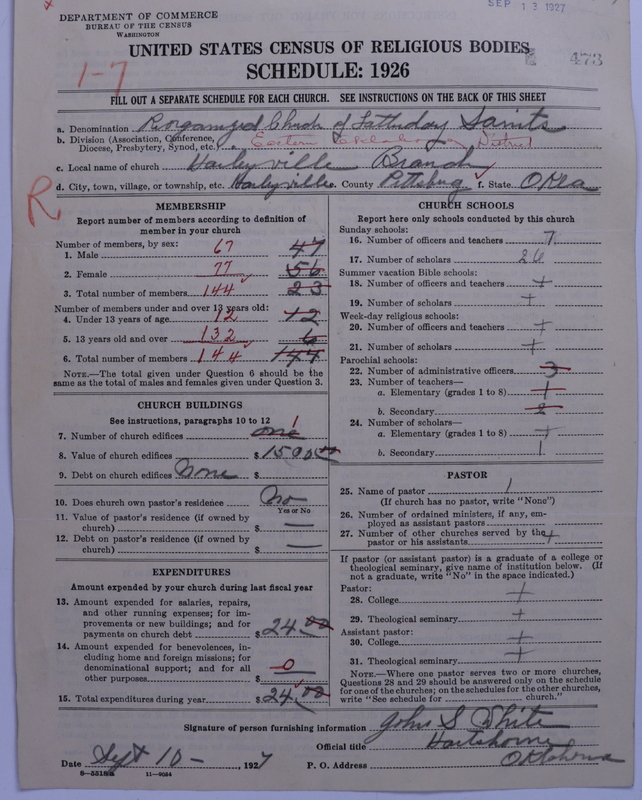 DEPARTMENT OF COMMERCE
BUREAU OF THE CENSUS
WASHINGTON
SEP 13 1927
UNITED STATES CENSUS OF RELIGIOUS BODIES
SCHEDULE: 1926
1-7
473
FILL OUT A SEPARATE SCHEDULE FOR EACH CHURCH. SEE INSTRUCTIONS ON THE BACK OF THIS SHEET
a. Denomination Reorganized Church of Latterday Saints
b. Division (Association, Conference, Diocese, Presbytery, Synod, etc.) Eastern Oklahoma District
c. Local name of church Haileyville Branch
d. City, town, village, or township, etc. Haileyville County Pittsburg f. State Okla
R
MEMBERSHIP
Report number of members according to definition of
member in your church
Number of members, by sex:
1. Male 67 47
2. Female 77 56
3. Total number of members 144 23
Number of members under and over 13 years old:
4. Under 13 years of age 12 12
5. 13 years old and over 132 6
6. Total number of members 144 144
NOTE.—The total given under Question 6 should be the
same as the total of males and females given under Question 3.
CHURCH BUILDINGS
See instructions, paragraphs 10 to 12
7. Number of church edifices one 1
8. Value of church edifices $1500.00
9. Debt on church edifices None $
10. Does church own pastor's residence No
Yes or No
11. Value of pastor's residence (if owned by
church) $ —
12. Debt on pastor's residence (if owned by
church) $ —
EXPENDITURES
Amount expended by your church during last fiscal year
13. Amount expended for salaries, repairs,
and other running expenses; for im-
provements or new buildings; and for
payments on church debt $24.00
14. Amount expended for benevolences, in-
cluding home and foreign missions; for
denominational support; and for all
other purposes 0
15. Total expenditures during year $24.00
CHURCH SCHOOLS
Report here only schools conducted by this church
Sunday schools:
16. Number of officers and teachers 7
17. Number of scholars 26
Summer vacation Bible schools:
18. Number of officers and teachers
19. Number of scholars
Week-day religious schools:
20. Number of officers and teachers
21. Number of scholars
Parochial schools:
22. Number of administrative officers 3
23. Number of teachers—
a. Elementary (grades 1 to 8) 1
b. Secondary 2
24. Number of scholars—
a. Elementary (grades 1 to 8)
b. Secondary
PASTOR
25. Name of pastor
(If church has no pastor, write "None")
26. Number of ordained ministers, if any, em-
ployed as assistant pastors
27. Number of other churches served by the
pastor or his assistants
If pastor (or assistant pastor) is a graduate of a college or
theological seminary, give name of institution below. (If
not a graduate, write "No" in the space indicated.)
Pastor:
28. College
29. Theological seminary
Assistant pastor:
30. College
31. Theological seminary
NOTE.—Where one pastor serves two or more churches,
Questions 28 and 29 should be answered only on the schedule
for one of the churches; on the schedules for the other churches,
write "See schedule for church."
Signature of person furnishing information John S White
Official title Hartshorne
Date Sept 10 -, 1927 P. O. Address Oklahoma
11—9054